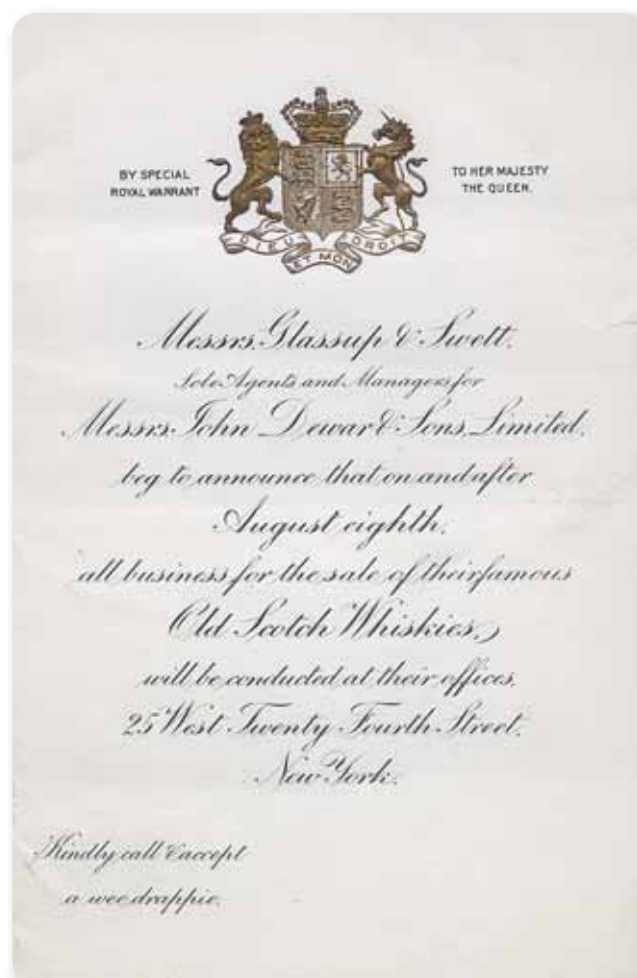 BY SPECIAL
ROYAL WARRANT
TO HER MAJESTY
THE QUEEN.
DIEU ET MON DROIT
Messrs. Glassup & Swett.
Sole Agents and Managers for
Messrs. John Dewar & Sons, Limited.
beg to announce that on and after
August eighth.
all business for the sale of their famous
Old Scotch Whiskies,
will be conducted at their offices.
25 West Twenty Fourth Street.
New York.
Kindly call & accept
a wee drappie.